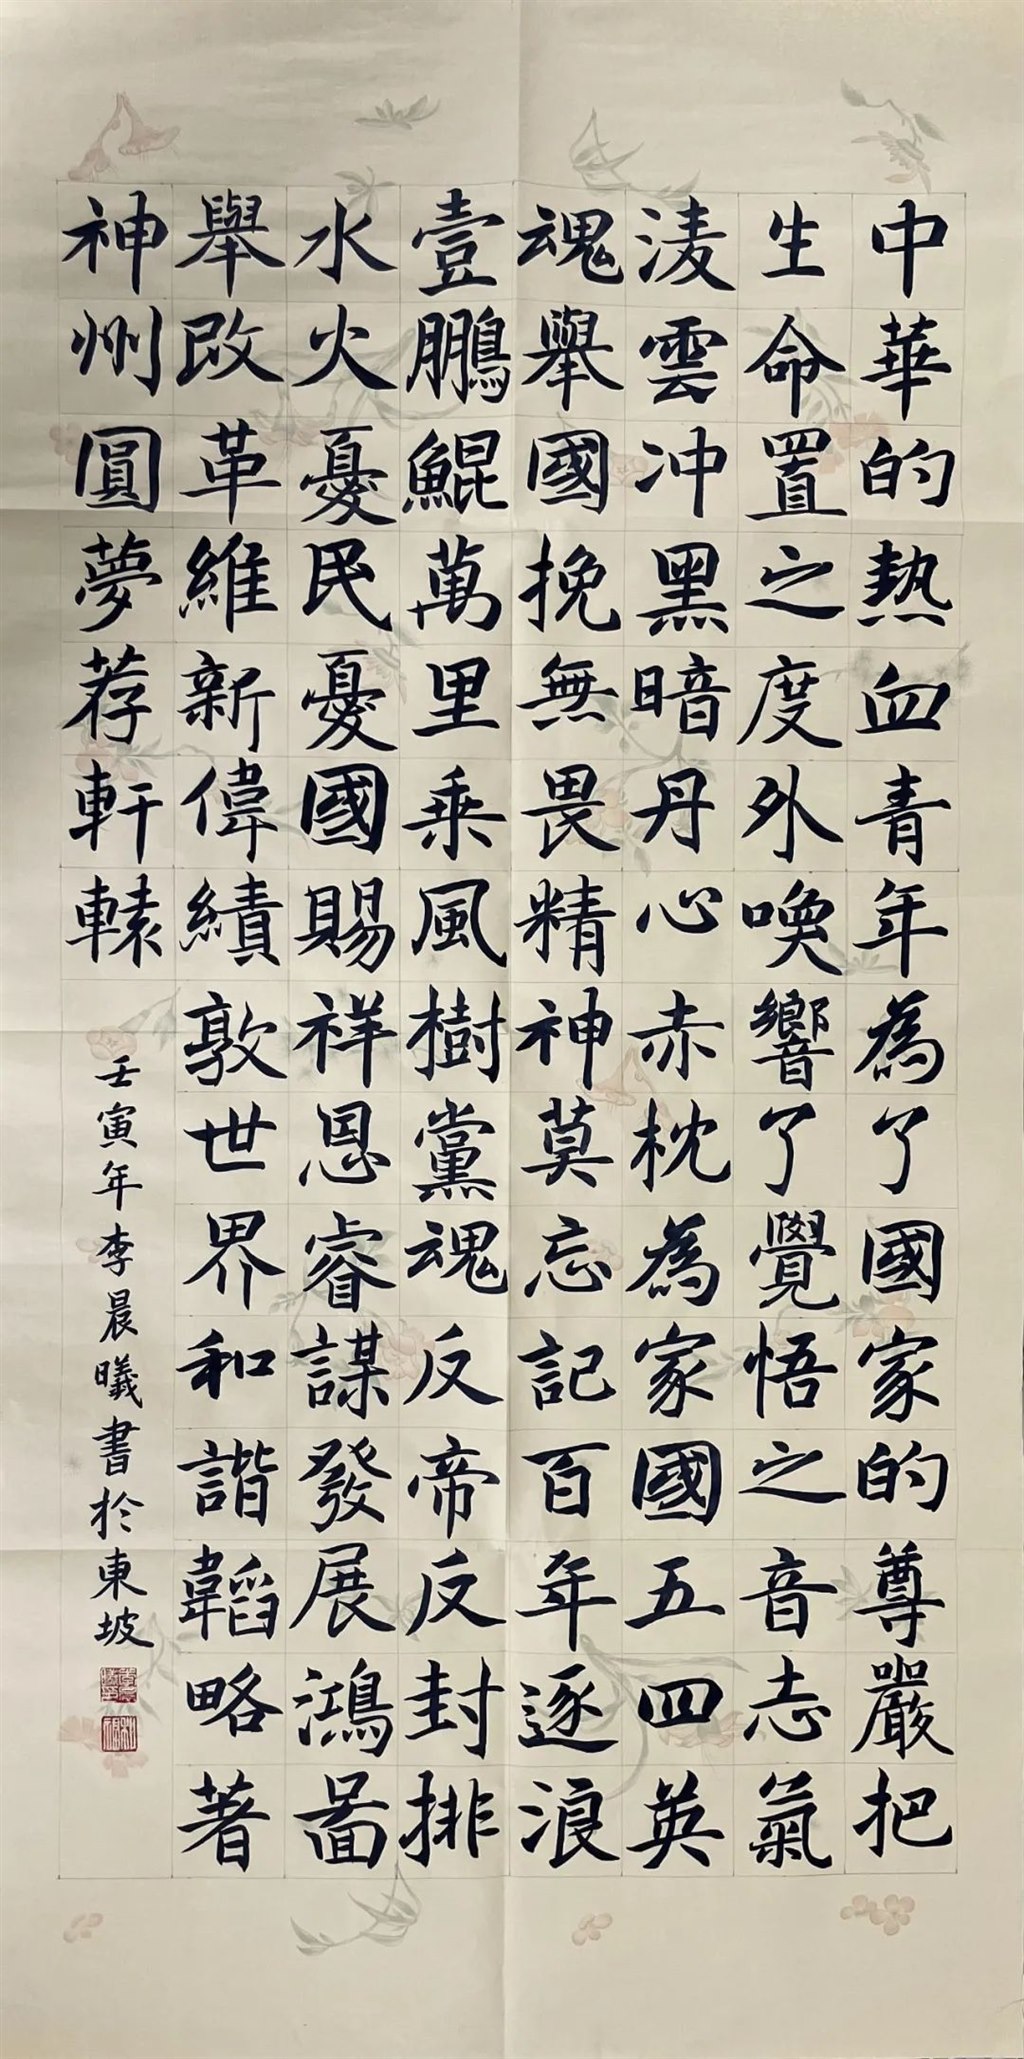 中華的熱血青年為了國家的尊嚴把
生命置之度外喚響了覺悟之音志氣
淩雲冲黑暗丹心赤枕為家國五四英
魂舉國挽無畏精神莫忘記百年逐浪
壹鵬鯤萬里乘風樹黨魂反帝反封排
水火憂民憂國賜祥恩睿謀發展鴻圖
舉改革維新偉績敦世界和諧韜略著
神州圓夢荐軒轅
壬寅年李晨曦書於東坡